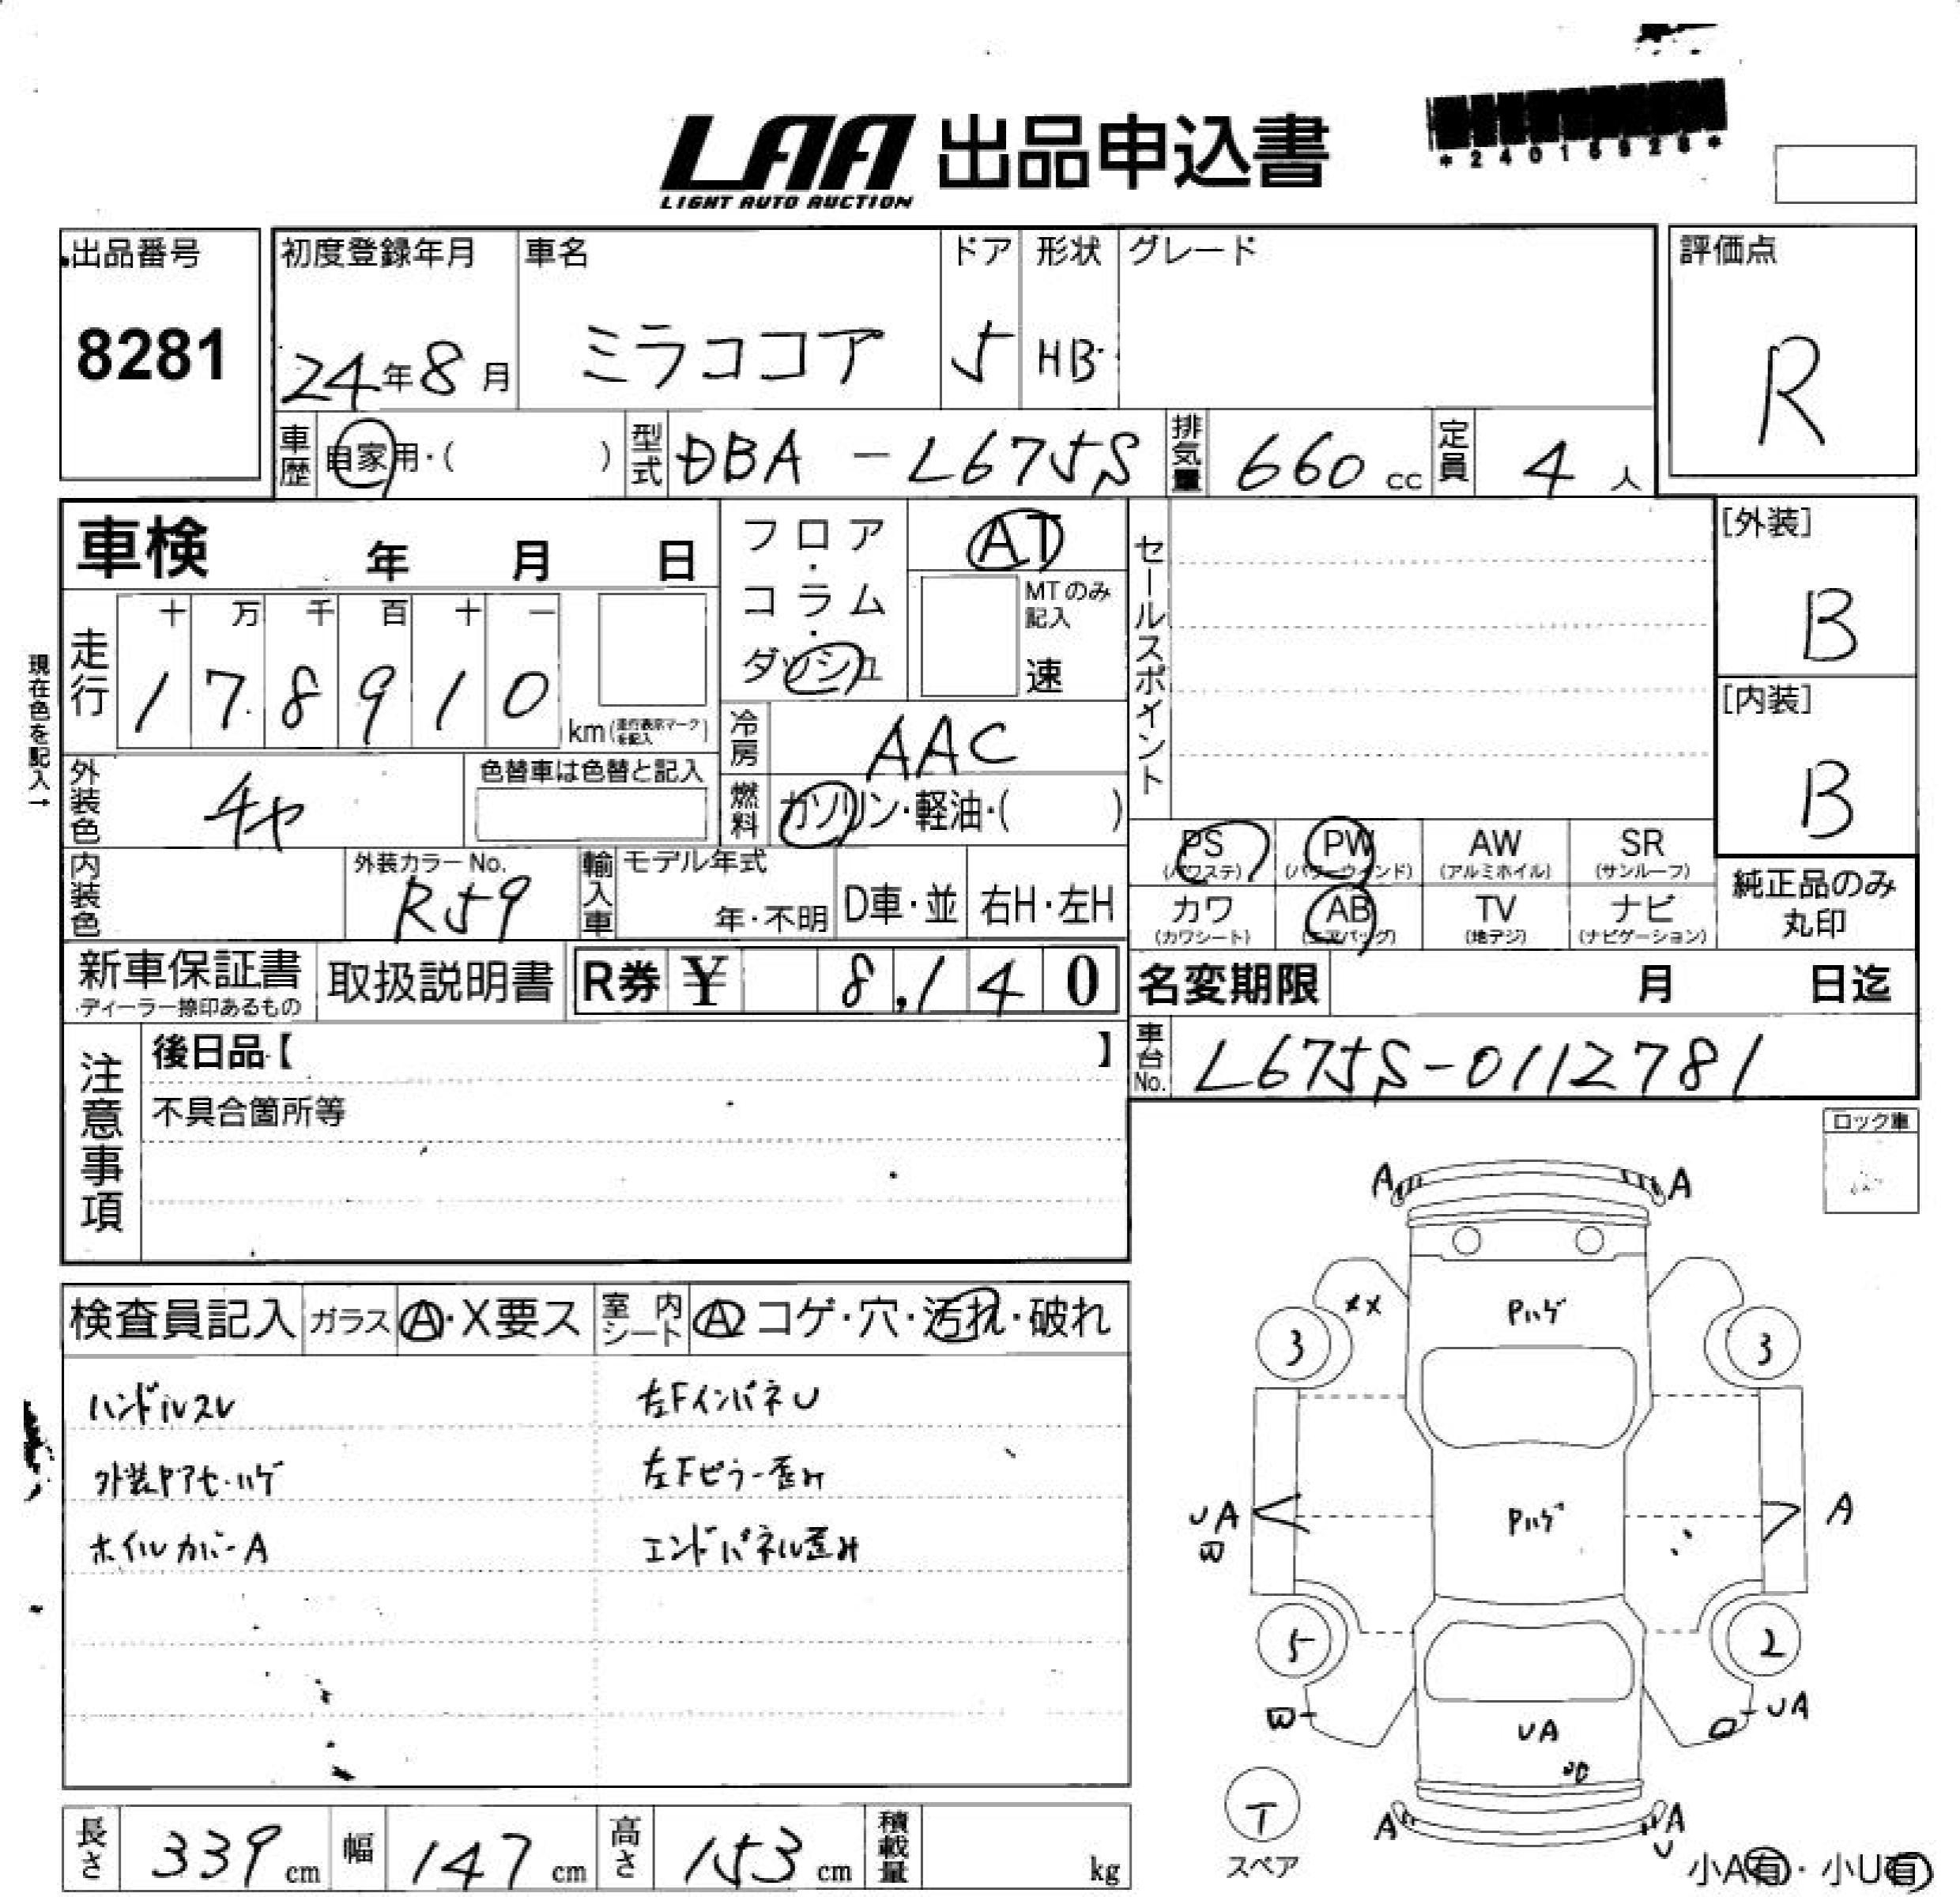 *24015328*
LAA 出品申込書
LIGHT AUTO AUCTION
出品番号
8281
初度登録年月
24年8月
車名
ミラココア
ドア
5
形状
HB
グレード
評価点
R
車歴 自家用・( )
型式 DBA-L675S
排気量 660 cc
定員 4 人
車検 年 月 日
フロア・コラム・ダッシュ
AT
MTのみ記入
速
セールスポイント
[外装]
B
[内装]
B
現在色を記入→
走行
十 万 千 百 十 一
1 7 8 9 1 0
km(走行表示マークを記入)
冷房 AAC
外装色 チャ
色替車は色替と記入
燃料 ガソリン・軽油・( )
PS (パワステ)
PW (パワーウィンド)
AW (アルミホイル)
SR (サンルーフ)
カワ (カワシート)
AB (エアバッグ)
TV (地デジ)
ナビ (ナビゲーション)
純正品のみ
丸印
内装色
外装カラーNo.
R59
輸入車 モデル年式
年・不明
D車・並
右H・左H
新車保証書
ディーラー捺印あるもの
取扱説明書
R券 ¥ 8,140
名変期限 月 日迄
車台No. L675S-0112781
注意事項
後日品【 】
不具合箇所等
ロック車
検査員記入
ガラス A・X要ス
室内シート A コゲ・穴・汚れ・破れ
ハンドルスレ
外装Pアセ・ハゲ
ホイルカバーA
左FインパネU
左Fピラー歪み
エンドパネル歪み
A A
XX
Pハゲ
3 3
UA
Pハゲ
A
5 2
UA
UA
T
スペア
A A
U
小A有・小U有
長さ 339 cm
幅 147 cm
高さ 153 cm
積載量 kg